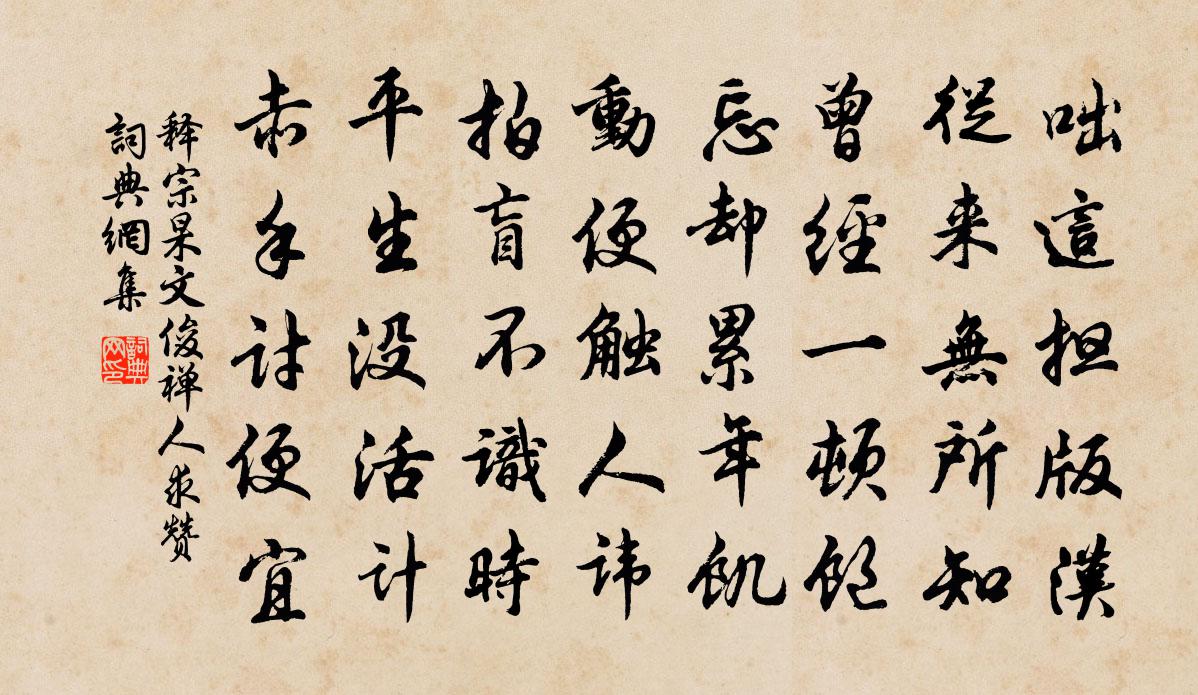 咄這担版漢
從来無所知
曾經一頓飽
忘却累年飢
動便触人諱
拍盲不識時
平生没活計
赤手討便宜
释宗杲文俊禅人求赞
詞典網集
詞典网印